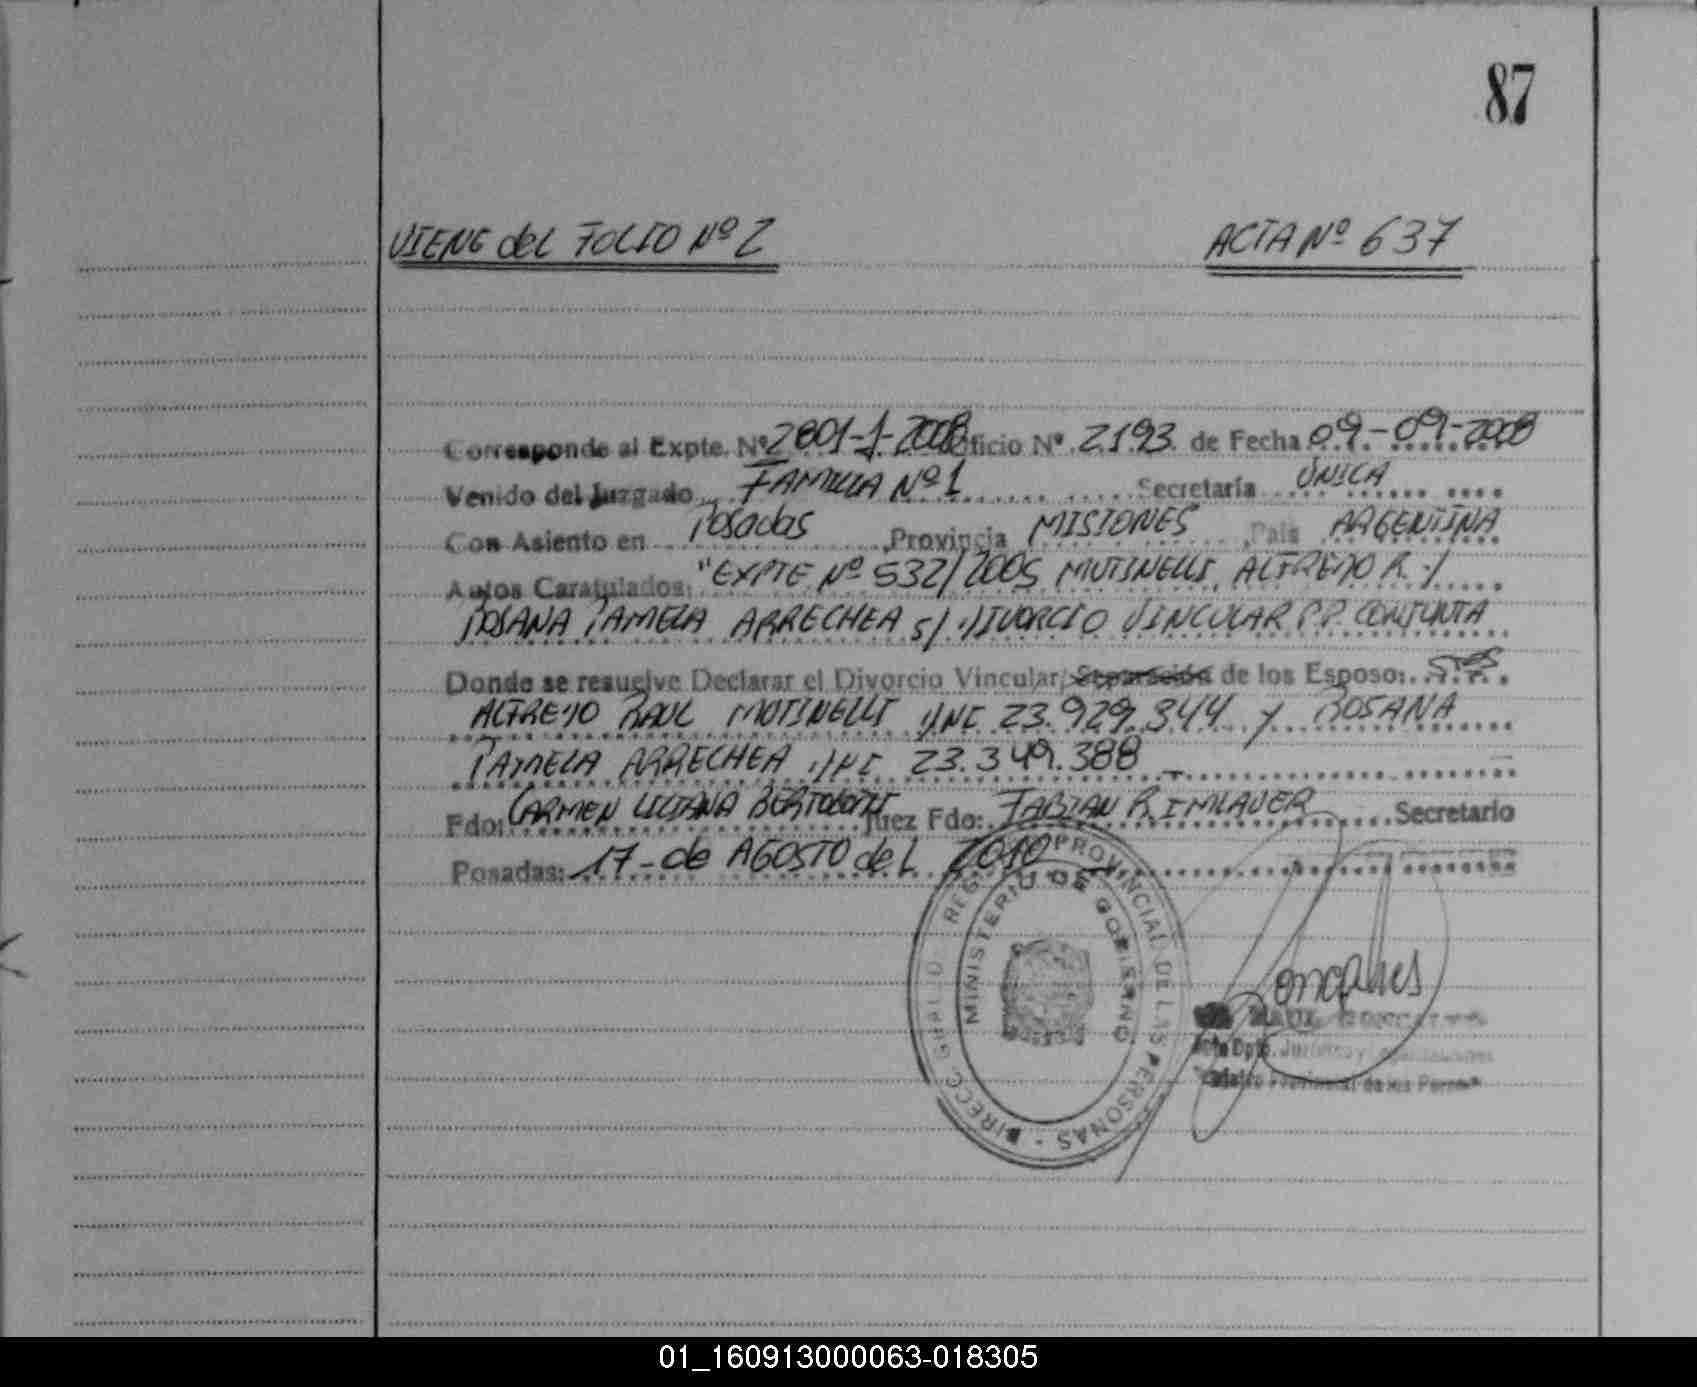 87
VIENE del FOLIO Nº 2
ACTA Nº 637
Corresponde al Expte. Nº 2801-J-2008 Oficio Nº 2193 de Fecha 09-09-2008
Venido del Juzgado FAMILIA Nº 1 Secretaria ÚNICA
Con Asiento en Posadas ,Provincia MISIONES ,Pais ARGENTINA
Autos Caratulados: "EXPTE Nº 532/2005 MUTINELLI, ALFREDO R. Y
ROSANA PAMELA ARRECHEA S/ DIVORCIO VINCULAR P.P. CONJUNTA
Donde se resuelve Declarar el Divorcio Vincular/ Separación de los Esposo: Sres
ALFREDO RAUL MUTINELLI DNI 23.929.344 Y ROSANA
PAMELA ARRECHEA DNI 23.349.388
Fdo: CARMEN LILIANA Juez Fdo: FABIAN R. IMLAUER Secretario
Posadas: 17 de AGOSTO del 2010
DIRECC. GRAL. D. REG. PROVINCIAL DE LAS PERSONAS
MINISTERIO DE GOBIERNO
Dpto.
Provincial de las
01_160913000063-018305